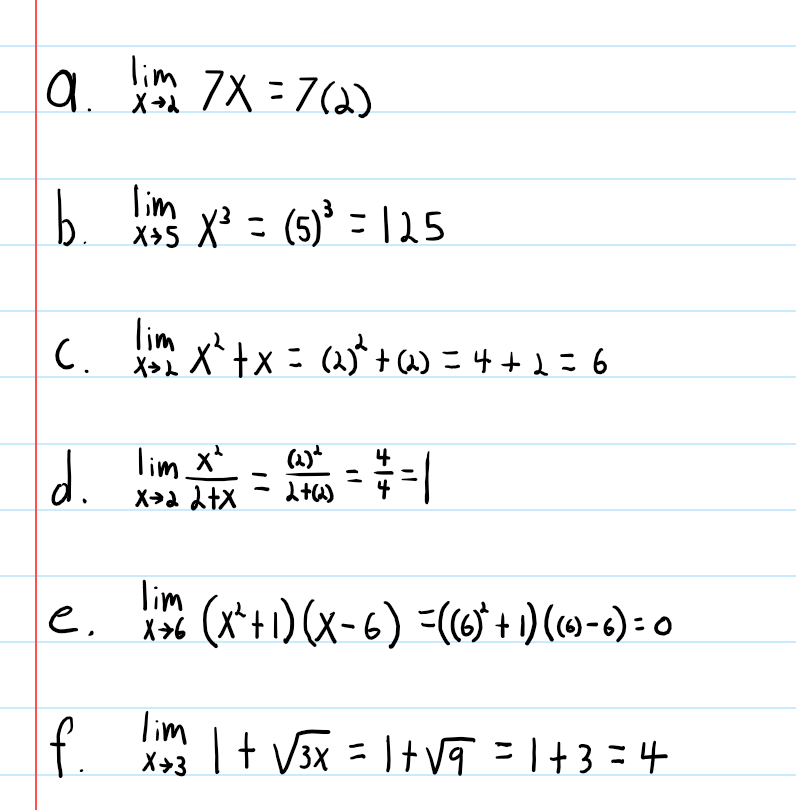 a. lim x→2 7x = 7(2)
b. lim x→5 x³ = (5)³ = 125
c. lim x→2 x² + x = (2)² + (2) = 4 + 2 = 6
d. lim x→2 x²/(2+x) = (2)²/(2+(2)) = 4/4 = 1
e. lim x→6 (x²+1)(x-6) = ((6)²+1)((6)-6) = 0
f. lim x→3 1 + √(3x) = 1 + √9 = 1 + 3 = 4